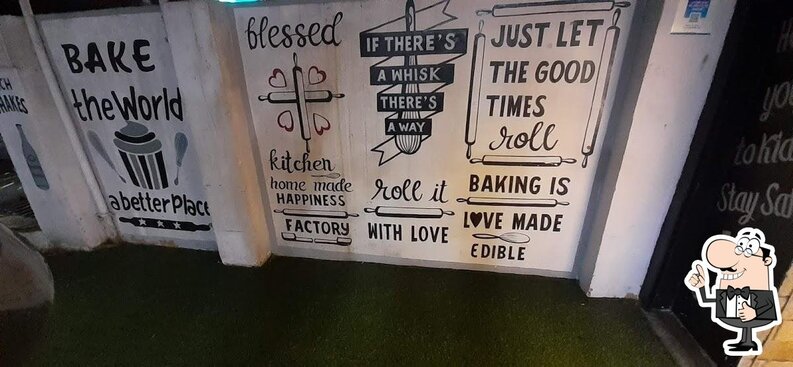 CH
AKES
BAKE
the World
a better Place
blessed
kitchen
home made
HAPPINESS
FACTORY
IF THERE'S
A WHISK
THERE'S
A WAY
roll it
WITH LOVE
JUST LET
THE GOOD
TIMES
roll
BAKING IS
LOVE MADE
EDIBLE
you
Stay Sa